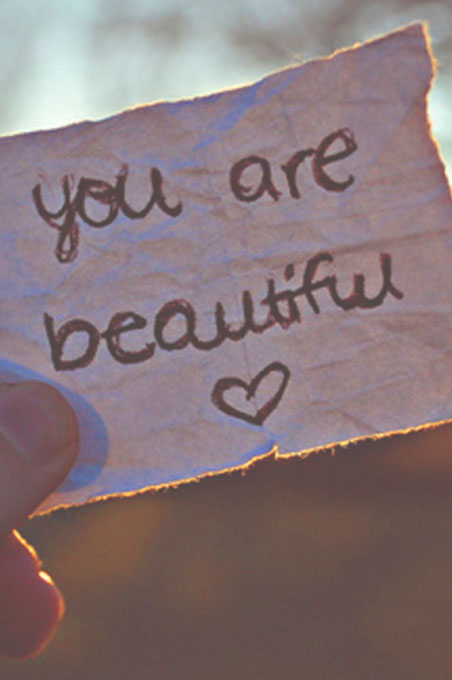 you are
beautiful
♡